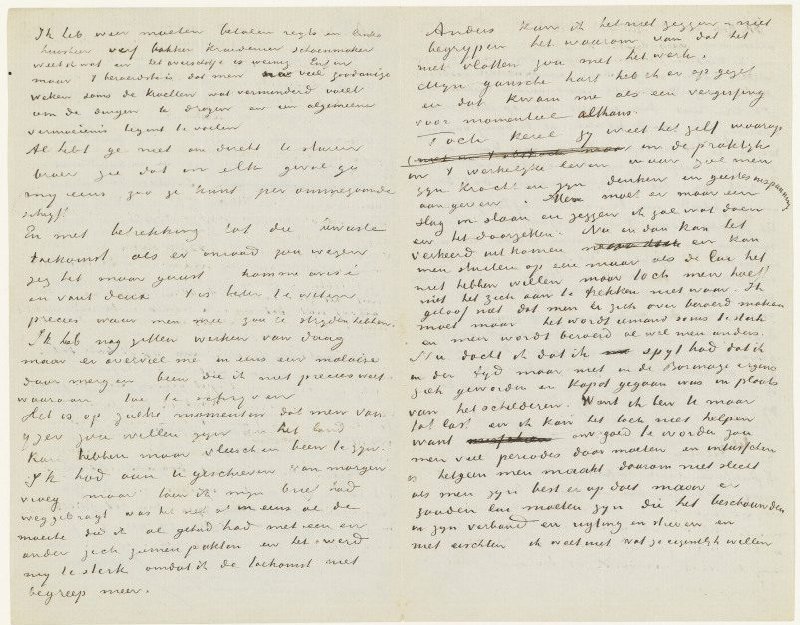 Ik heb weer moeten betalen regts en links
huishuur verf bakker kruidenier schoenmaker
weet ik wat en het overschotje is weinig Enfin
maar 't beroerdste is dat men na veel zoodanige
weken zoms de krachten wat verminderd voelt
om de dingen te dragen en een algemeene
vermoeienis begint te voelen
Al hebt ge niet om direkt te sturen
broer zie dat in elk geval ge
my eens zoo je kunt per ommegaande
schryft
En met betrekking tot die
toekomst als er onraad zou wezen
zeg het maar gerust homme avisé
en vaut deux 't is beter te weten
precies waar men mee zou te stryden hebben.
Ik heb nog zitten werken van daag
maar er overviel me in eens een malaise
daar morgen been die ik niet precies wat
waaraan toe te schryven
Het is op zulke momenten dat men van
yzer zou willen zyn en het land
kan hebben maar vleesch en been te zyn.
Ik had aan u geschreven van morgen
vroeg maar toen ik myn brief had
weggebragt was het net of in eens al de
moeite die ik al gehad had met een en
ander zich zamenpakten en het werd
my te sterk omdat ik de toekomst niet
begreep meer.
Anders kan ik het niet zeggen en niet
begrypen het waarom van dat het
niet vlotten zou met het werk.
Myn gansche hart heb ik er op gezet
en dat kwam me als een vergissing
voor momenteel althans.
Toch kerel gy weet het zelf waarop
in de praktyk
in 't werkelyke leven waar zal men
zyn kracht en zyn denken en geestesinspanning
aan geven. Men moet er maar een
slag in slaan en zeggen ik zal wat doen
en het doorzetten. Nu en dan kan het
verkeerd uitkomen en kan
men stuiten op een muur als de lui het
niet hebben willen maar toch men hoeft
niet het zich aan te trekken niet waar. Ik
geloof niet dat men er zich over beroerd maken
moet maar het wordt iemand zoms te sterk
en men wordt beroerd al wil men anders.
Nu dacht ik dat ik spyt had dat ik
in der tyd maar niet in de Borinage ergens
ziek geworden en kapot gegaan was in plaats
van het schilderen. Want ik ben u maar
tot last en ik kan het toch niet helpen
want om goed te worden zou
men veel periodes door moeten en intusschen
is hetgeen men maakt daarom niet slecht
als men zyn best er op doet maar er
zouden lui moeten zyn die het beschouwden
in zyn verband en rigting en streven en
niet eischten ik weet niet wat je eigenlyk willen